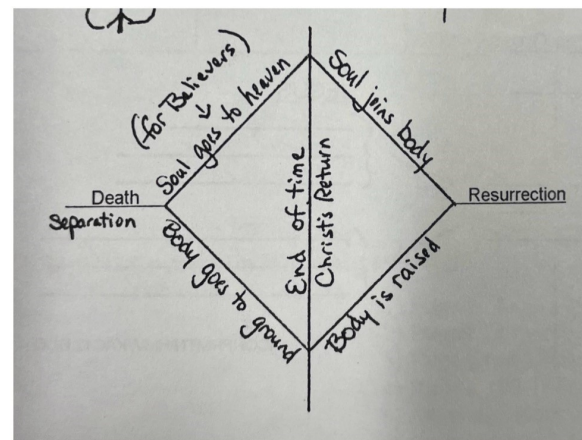 (for Believers)
Soul goes to heaven
Soul joins body
Death
Separation
End of time
Christ's Return
Resurrection
Body goes to ground
Body is raised